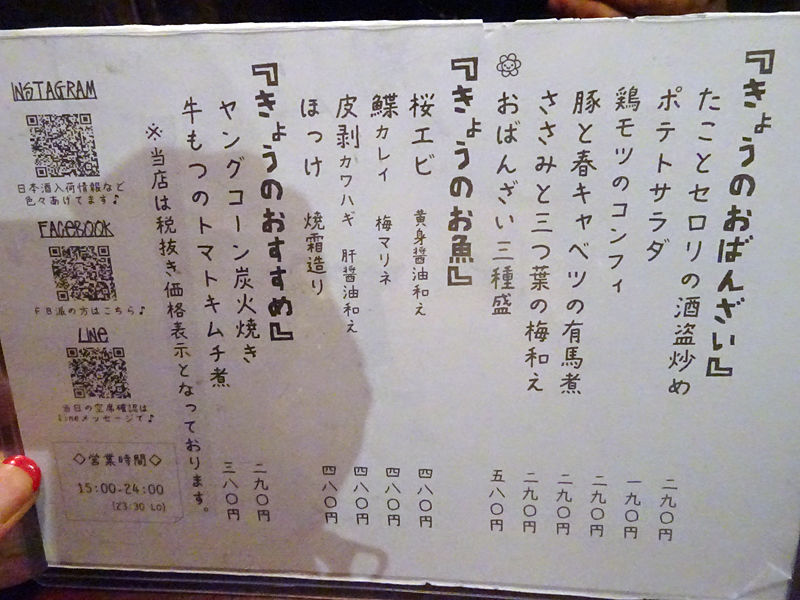 『きょうのおばんざい』
たことセロリの酒盗炒め 二九〇円
ポテトサラダ 一九〇円
鶏モツのコンフィ 二九〇円
豚と春キャベツの有馬煮 二九〇円
ささみと三つ葉の梅和え 二九〇円
おばんざい三種盛 五八〇円
『きょうのお魚』
桜エビ 黄身醤油和え 四八〇円
鰈カレイ 梅マリネ 四八〇円
皮剥カワハギ 肝醤油和え 四八〇円
ほっけ 焼霜造り 四八〇円
『きょうのおすすめ』
ヤングコーン炭火焼き 二九〇円
牛もつのトマトキムチ煮 三八〇円
※当店は税抜き価格表示となっております。
INSTAGRAM
日本酒入荷情報など
色々あげてます♪
FACEBOOK
FB派の方はこちら♪
LINE
当日の空席確認は
Lineメッセージで♪
◇営業時間◇
15:00-24:00
(23:30 LO)